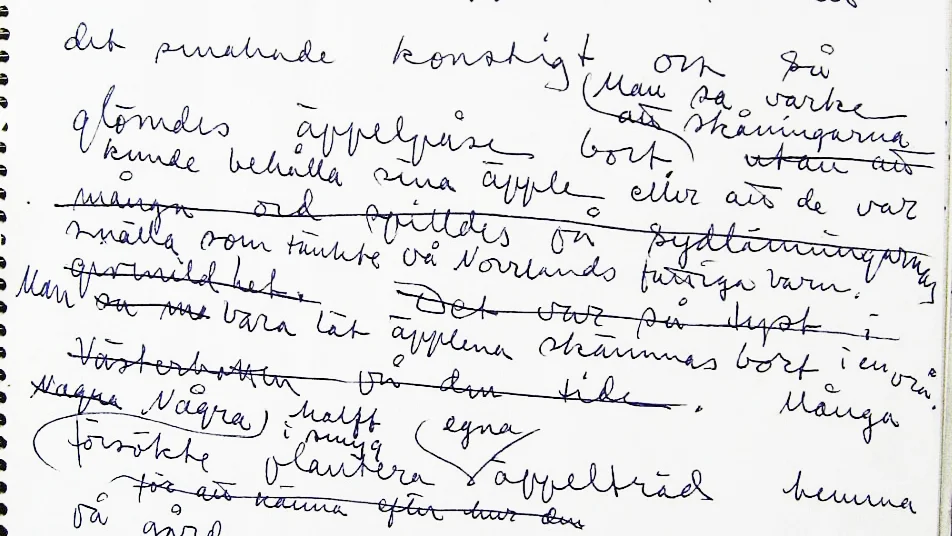 det smakade konstigt och så
(Man sa varke
att skåningarna
glömdes äppelpåse bort. utan att
kunde behålla sina äpple eller att de var
många ord spilldes på sydlänningarnas
snälla som tänkte på Norrlands fattiga barn.
givmildhet. Det var så tyst i
Man sa me bara lät äpplena skämmas bort i en vrå.
Västerbotten på den tide. Många
Några Några) halft
i smyg (egna
försökte plantera äppelträd hemma
för att känna efter hur den
på gård